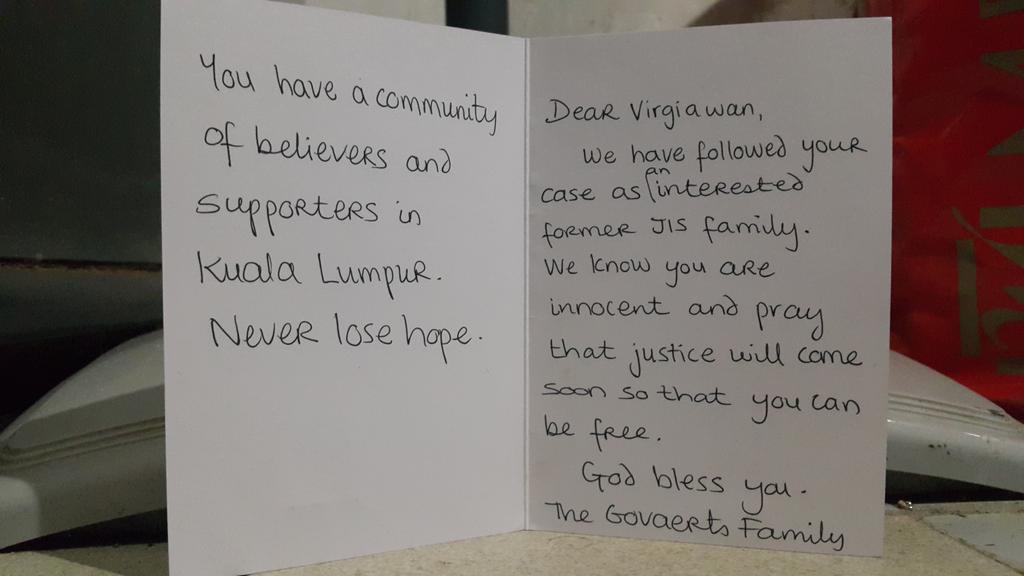 You have a community
of believers and
supporters in
Kuala Lumpur.
Never lose hope.
Dear Virgiawan,
We have followed your
case as an interested
former JIS family.
We know you are
innocent and pray
that justice will come
soon so that you can
be free.
God bless you.
The Govaerts Family